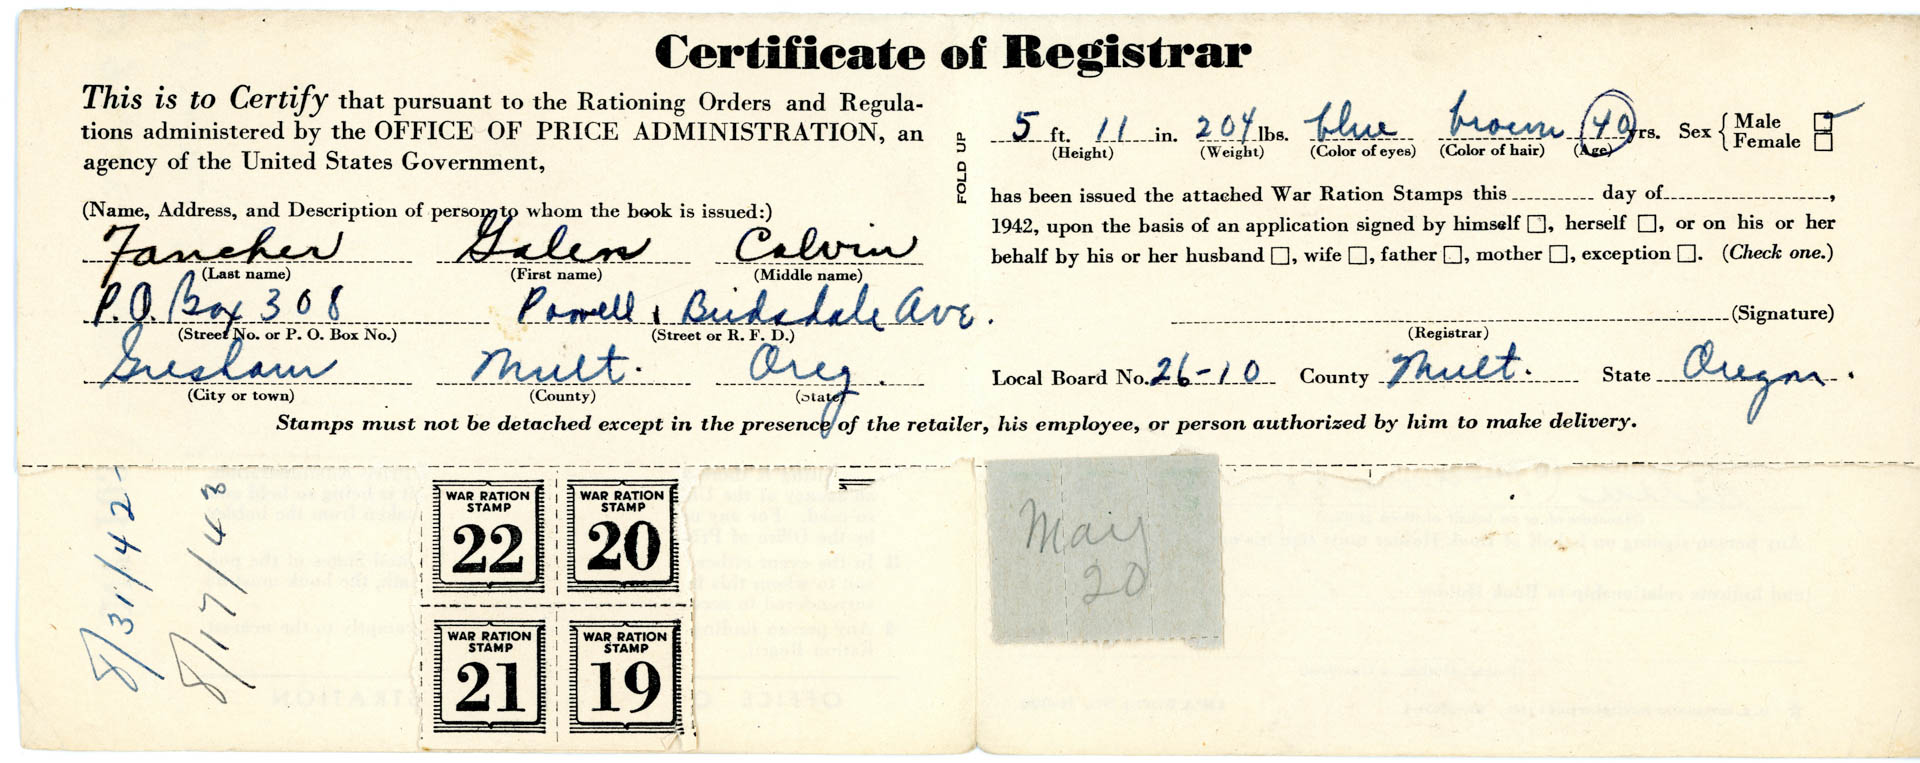 Certificate of Registrar
This is to Certify that pursuant to the Rationing Orders and Regula-
tions administered by the OFFICE OF PRICE ADMINISTRATION, an
agency of the United States Government,
(Name, Address, and Description of person to whom the book is issued:)
Fancher Galen Calvin
(Last name) (First name) (Middle name)
P.O. Box 308 Powell & Birdsdale Ave.
(Street No. or P. O. Box No.) (Street or R. F. D.)
Gresham Mult. Oreg.
(City or town) (County) (State)
FOLD UP
5 ft. 11 in. 204 lbs. blue brown 40 yrs. Sex { Male
Female
(Height) (Weight) (Color of eyes) (Color of hair) (Age)
has been issued the attached War Ration Stamps this day of ,
1942, upon the basis of an application signed by himself □, herself □, or on his or her
behalf by his or her husband □, wife □, father □, mother □, exception □. (Check one.)
(Signature)
(Registrar)
Local Board No. 26-10 County Mult. State Oregon.
Stamps must not be detached except in the presence of the retailer, his employee, or person authorized by him to make delivery.
8/31/42-
8/17/43
WAR RATION
STAMP
22
WAR RATION
STAMP
20
WAR RATION
STAMP
21
WAR RATION
STAMP
19
May
20